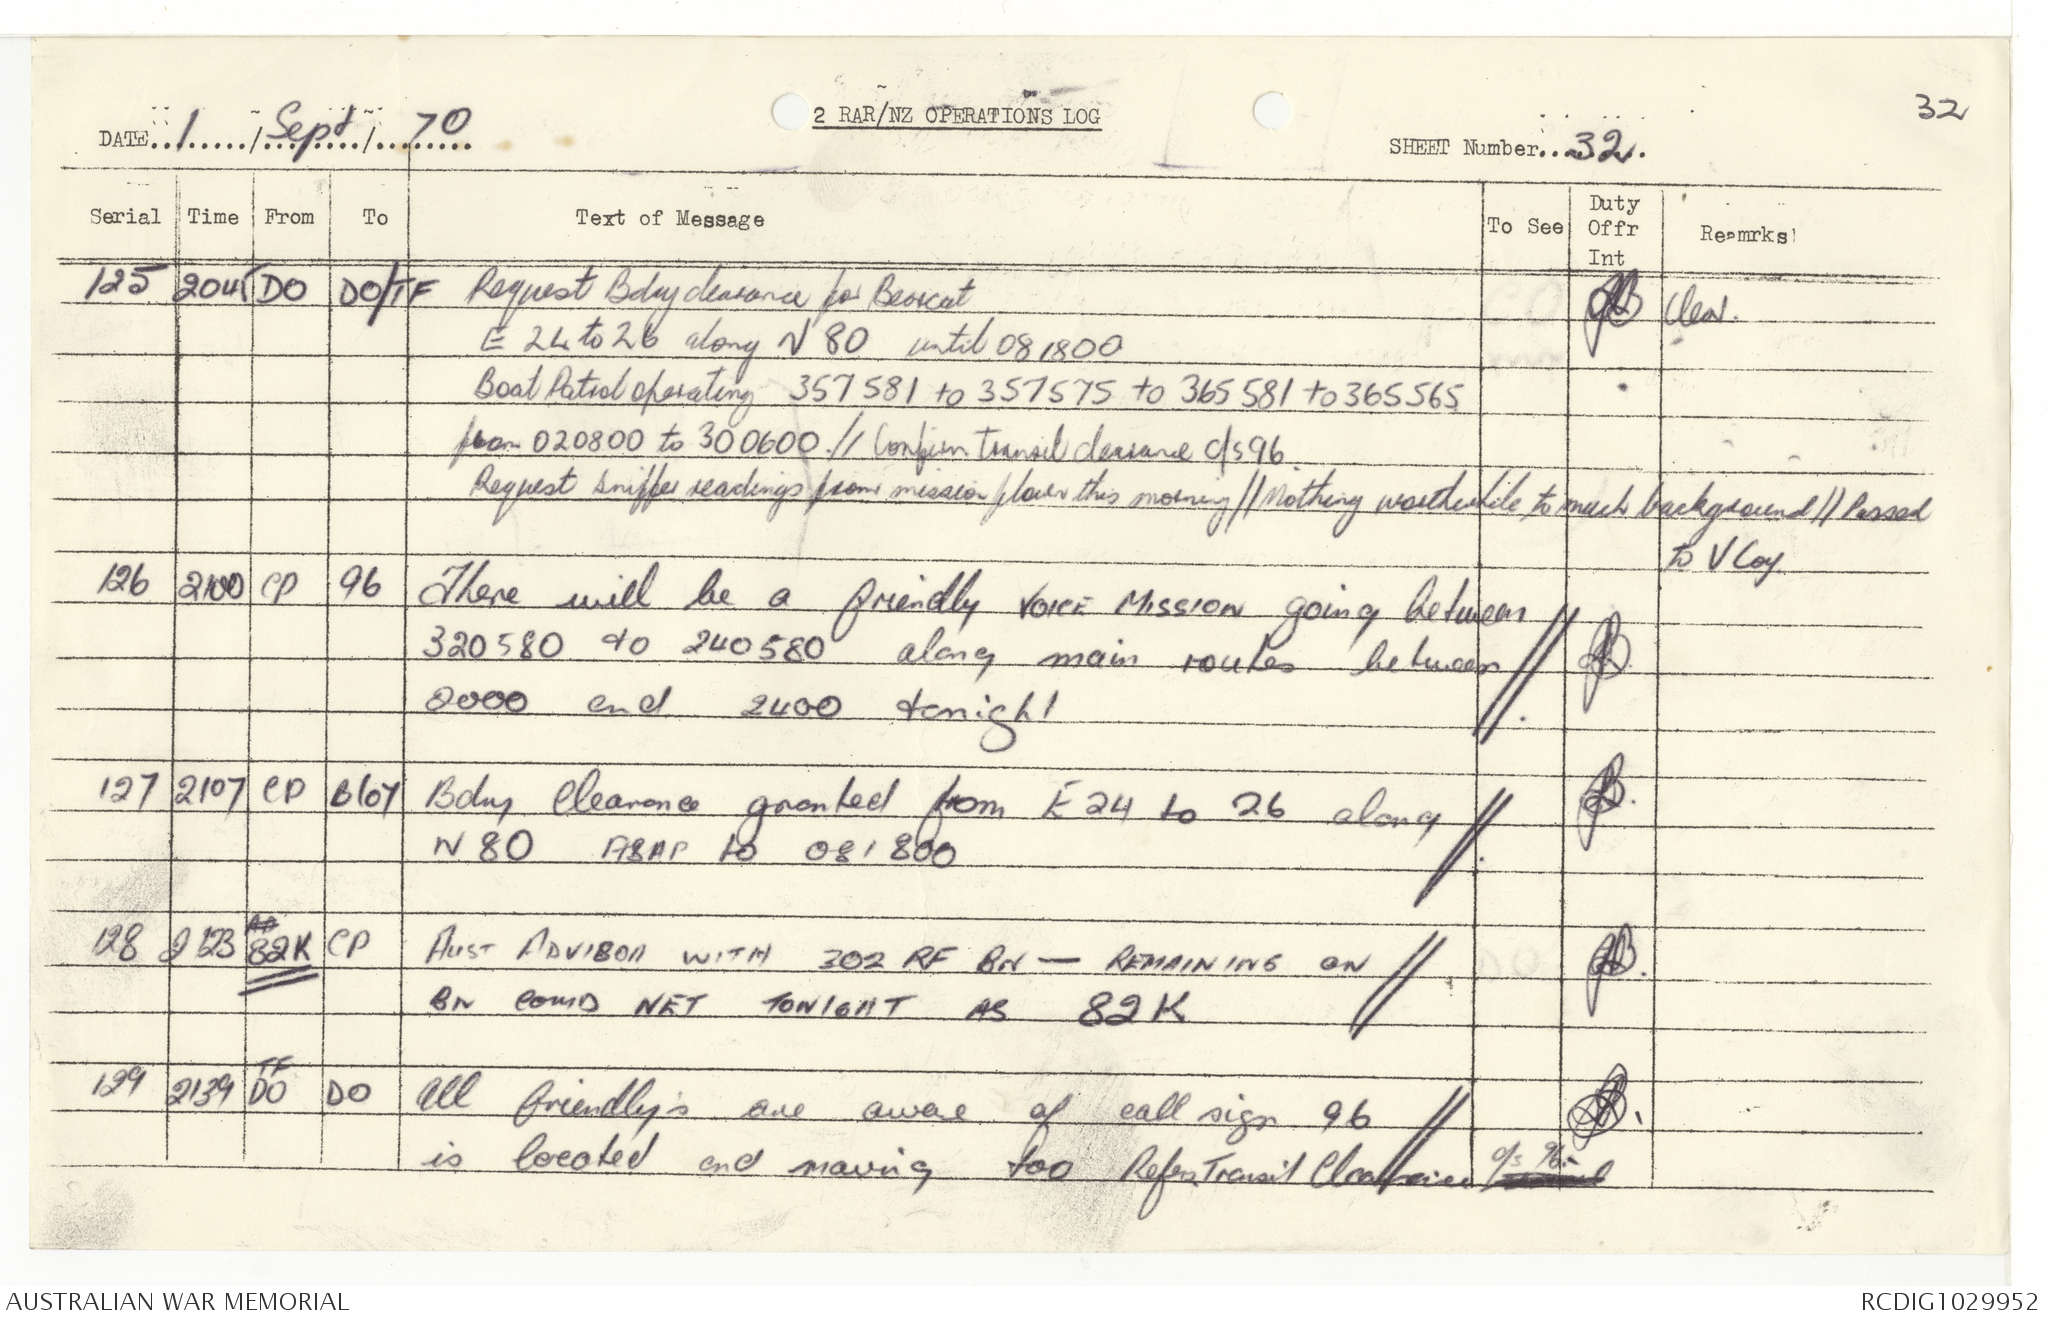 32
DATE 1 / Sept / 70
2 RAR/NZ OPERATIONS LOG
SHEET Number 32
Serial Time From To Text of Message To See Duty Offr Int Reamrks
125 2045 DO DO/TF Request Bdry clearance for Bearcat Clear.
E 24 to 26 along N 80 until 081800
Boat Patrol operating 357581 to 357575 to 365581 to 365565
from 020800 to 300600 // Confirm transit clearance c/s 96.
Request sniffer readings from mission flown this morning // Nothing worthwhile to much background // Passed
to V Coy.
126 2100 CP 96 There will be a friendly VOICE MISSION going between
320580 to 240580 along main routes between
2000 and 2400 tonight
127 2107 CP B Coy Bdry Clearance granted from E 24 to 26 along
N 80 ASAP to 081800
128 2123 82K CP AUST ADVISOR WITH 302 RF BN — REMAINING ON
BN COMD NET TONIGHT AS 82K
129 2139 TF DO DO All friendly's are aware of call sign 96
is located and moving too Refers Transit Clearance c/s 96.
AUSTRALIAN WAR MEMORIAL
RCDIG1029952